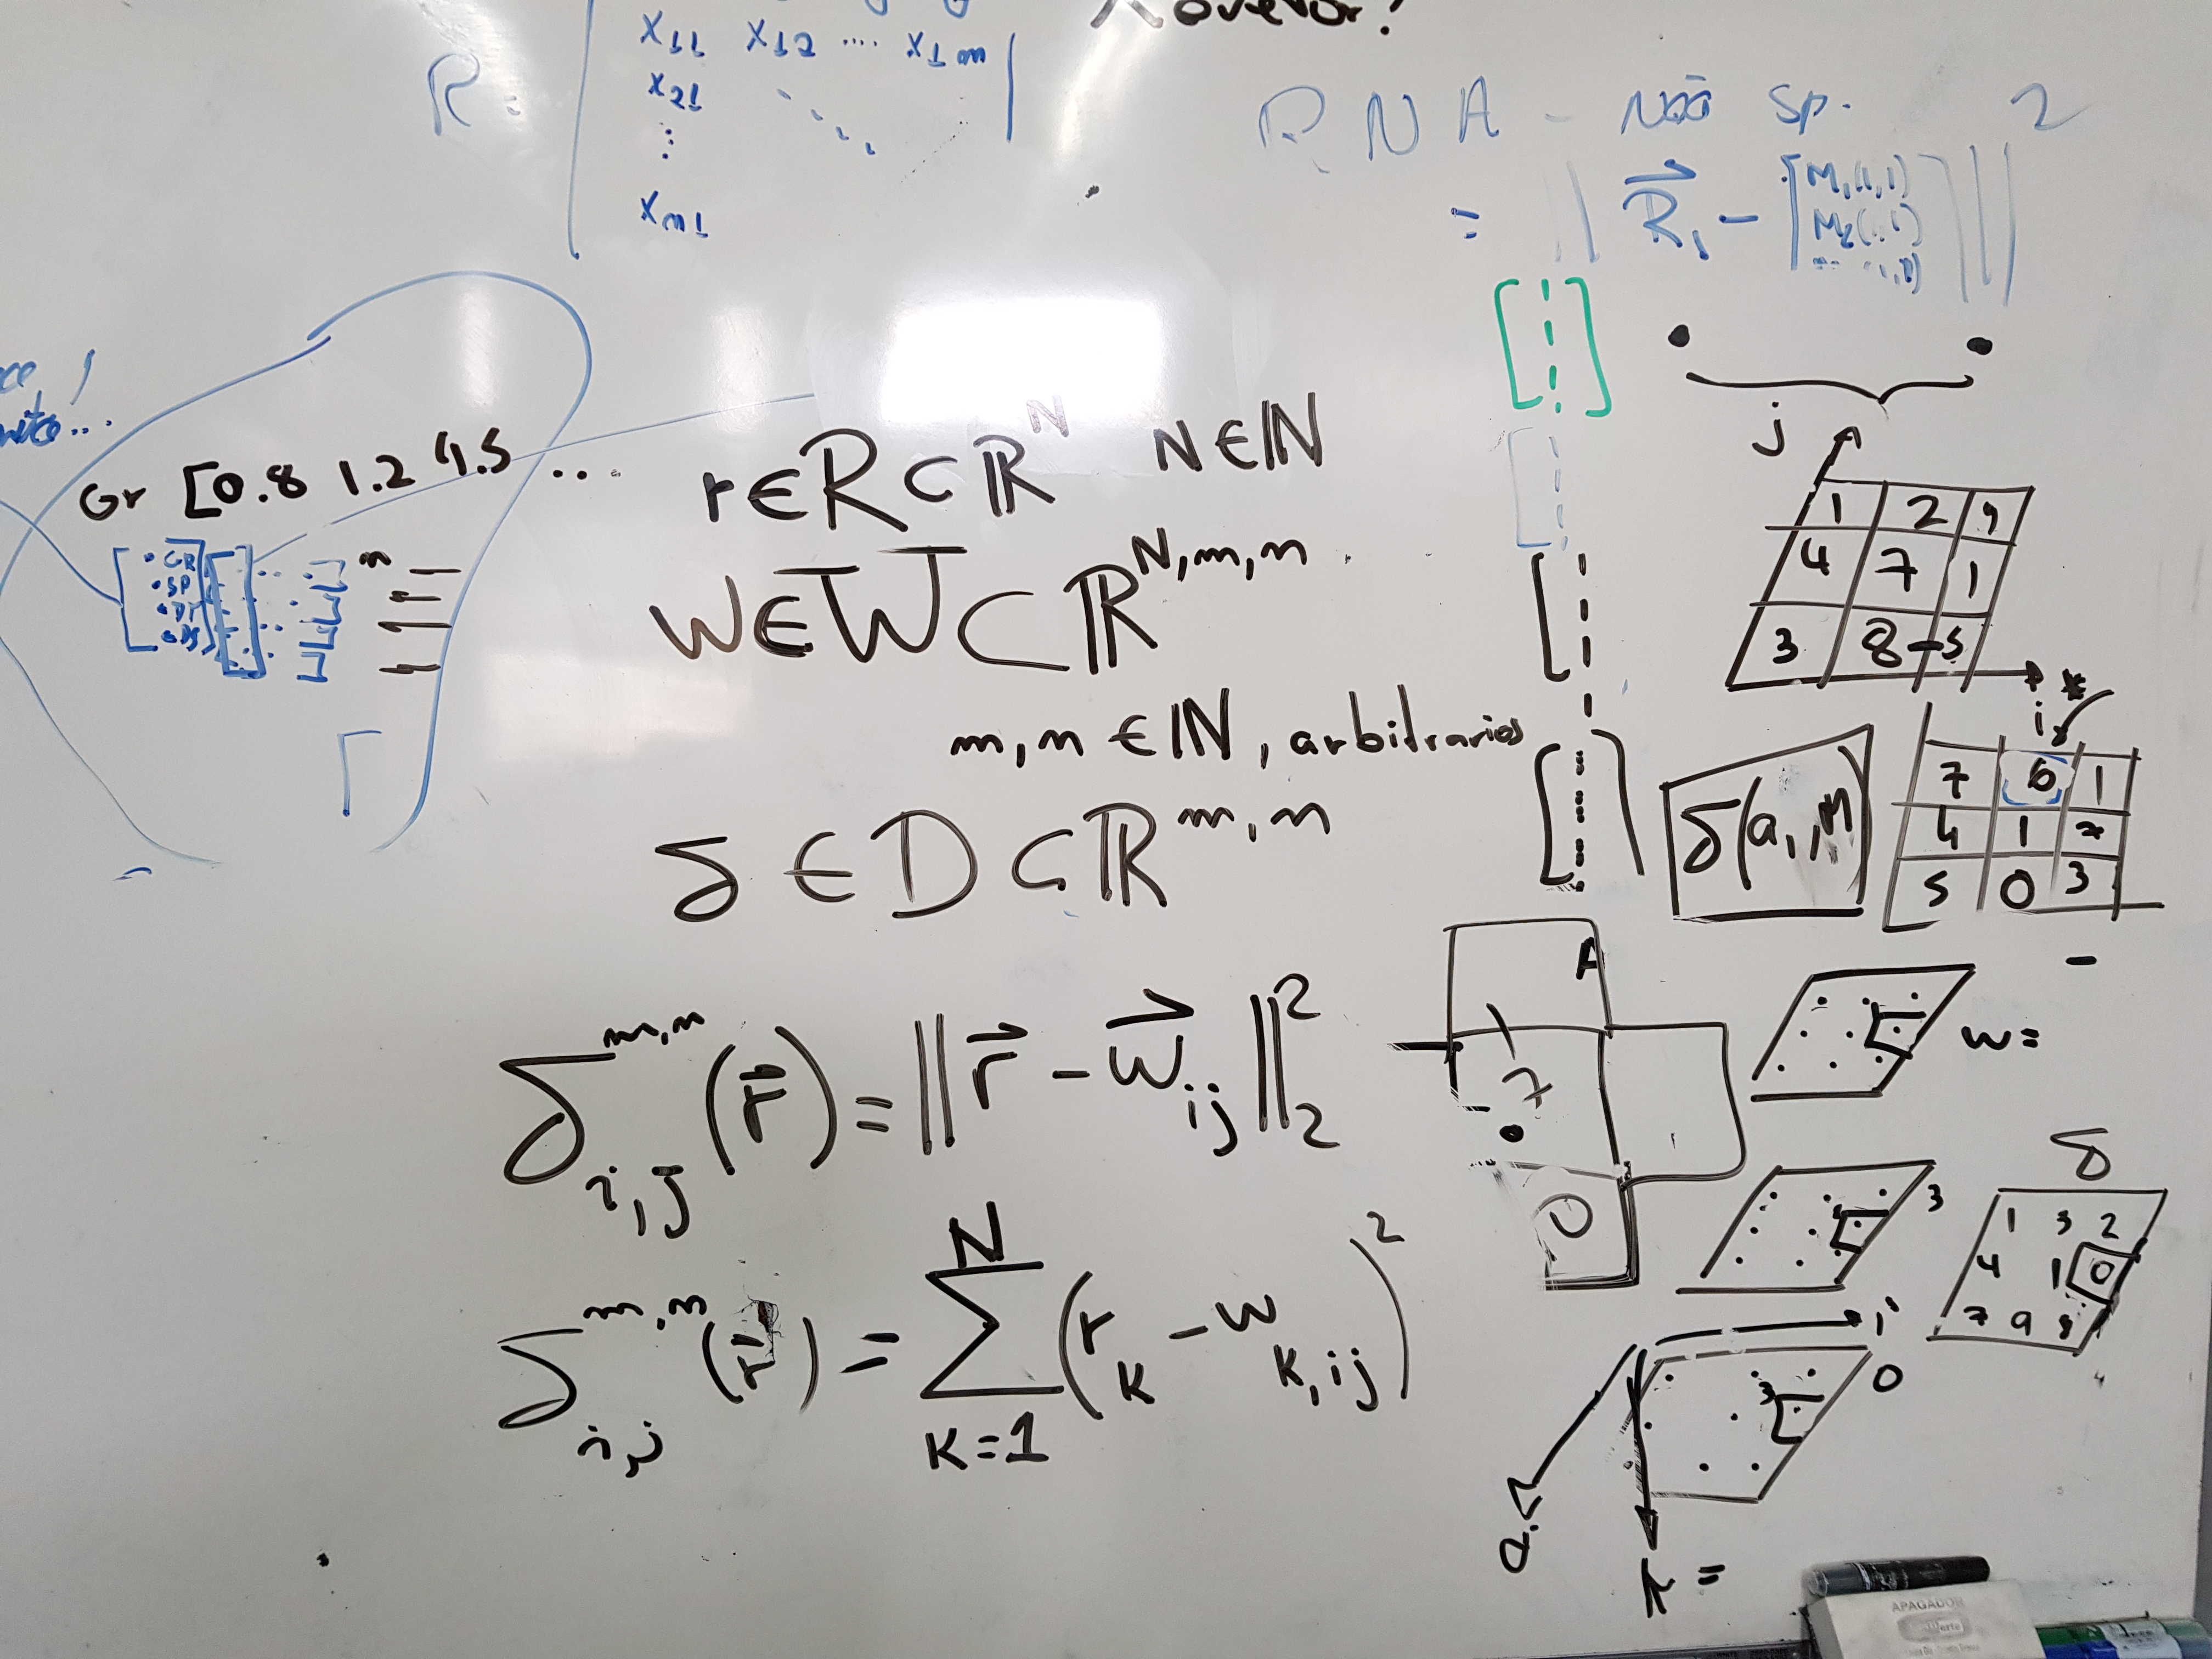 x₁₁ x₁₂ .... x₁ₘ
R = x₂₁
⋮
xₘ₁
RNA - não sp.
= || R⃗₁ - [M₁(1,1)
M₂(1,1)
|| 2
Gr [0.8 1.2 4.5 ...
• GR
• SP
• DT
m
r ∈ R ⊂ ℝᴺ N ∈ ℕ
W ∈ W ⊂ ℝ^N,m,n
m,n ∈ ℕ, arbitrarios
δ ∈ D ⊂ ℝ^m,n
δ^m,n_i,j (r⃗) = || r⃗ - w⃗_ij ||²₂
δ^m,n_i,j (r⃗) = Σ^N_K=1 (r_K - w_K,ij)²
j
1 2 9
4 7 1
3 8 5
i *
δ(a,,M
7 0 1
4 1 2
5 0 3
A
7
0
w =
3
δ
1 3 2
4 1 0
7 9
i
0
K =
APAGADOR